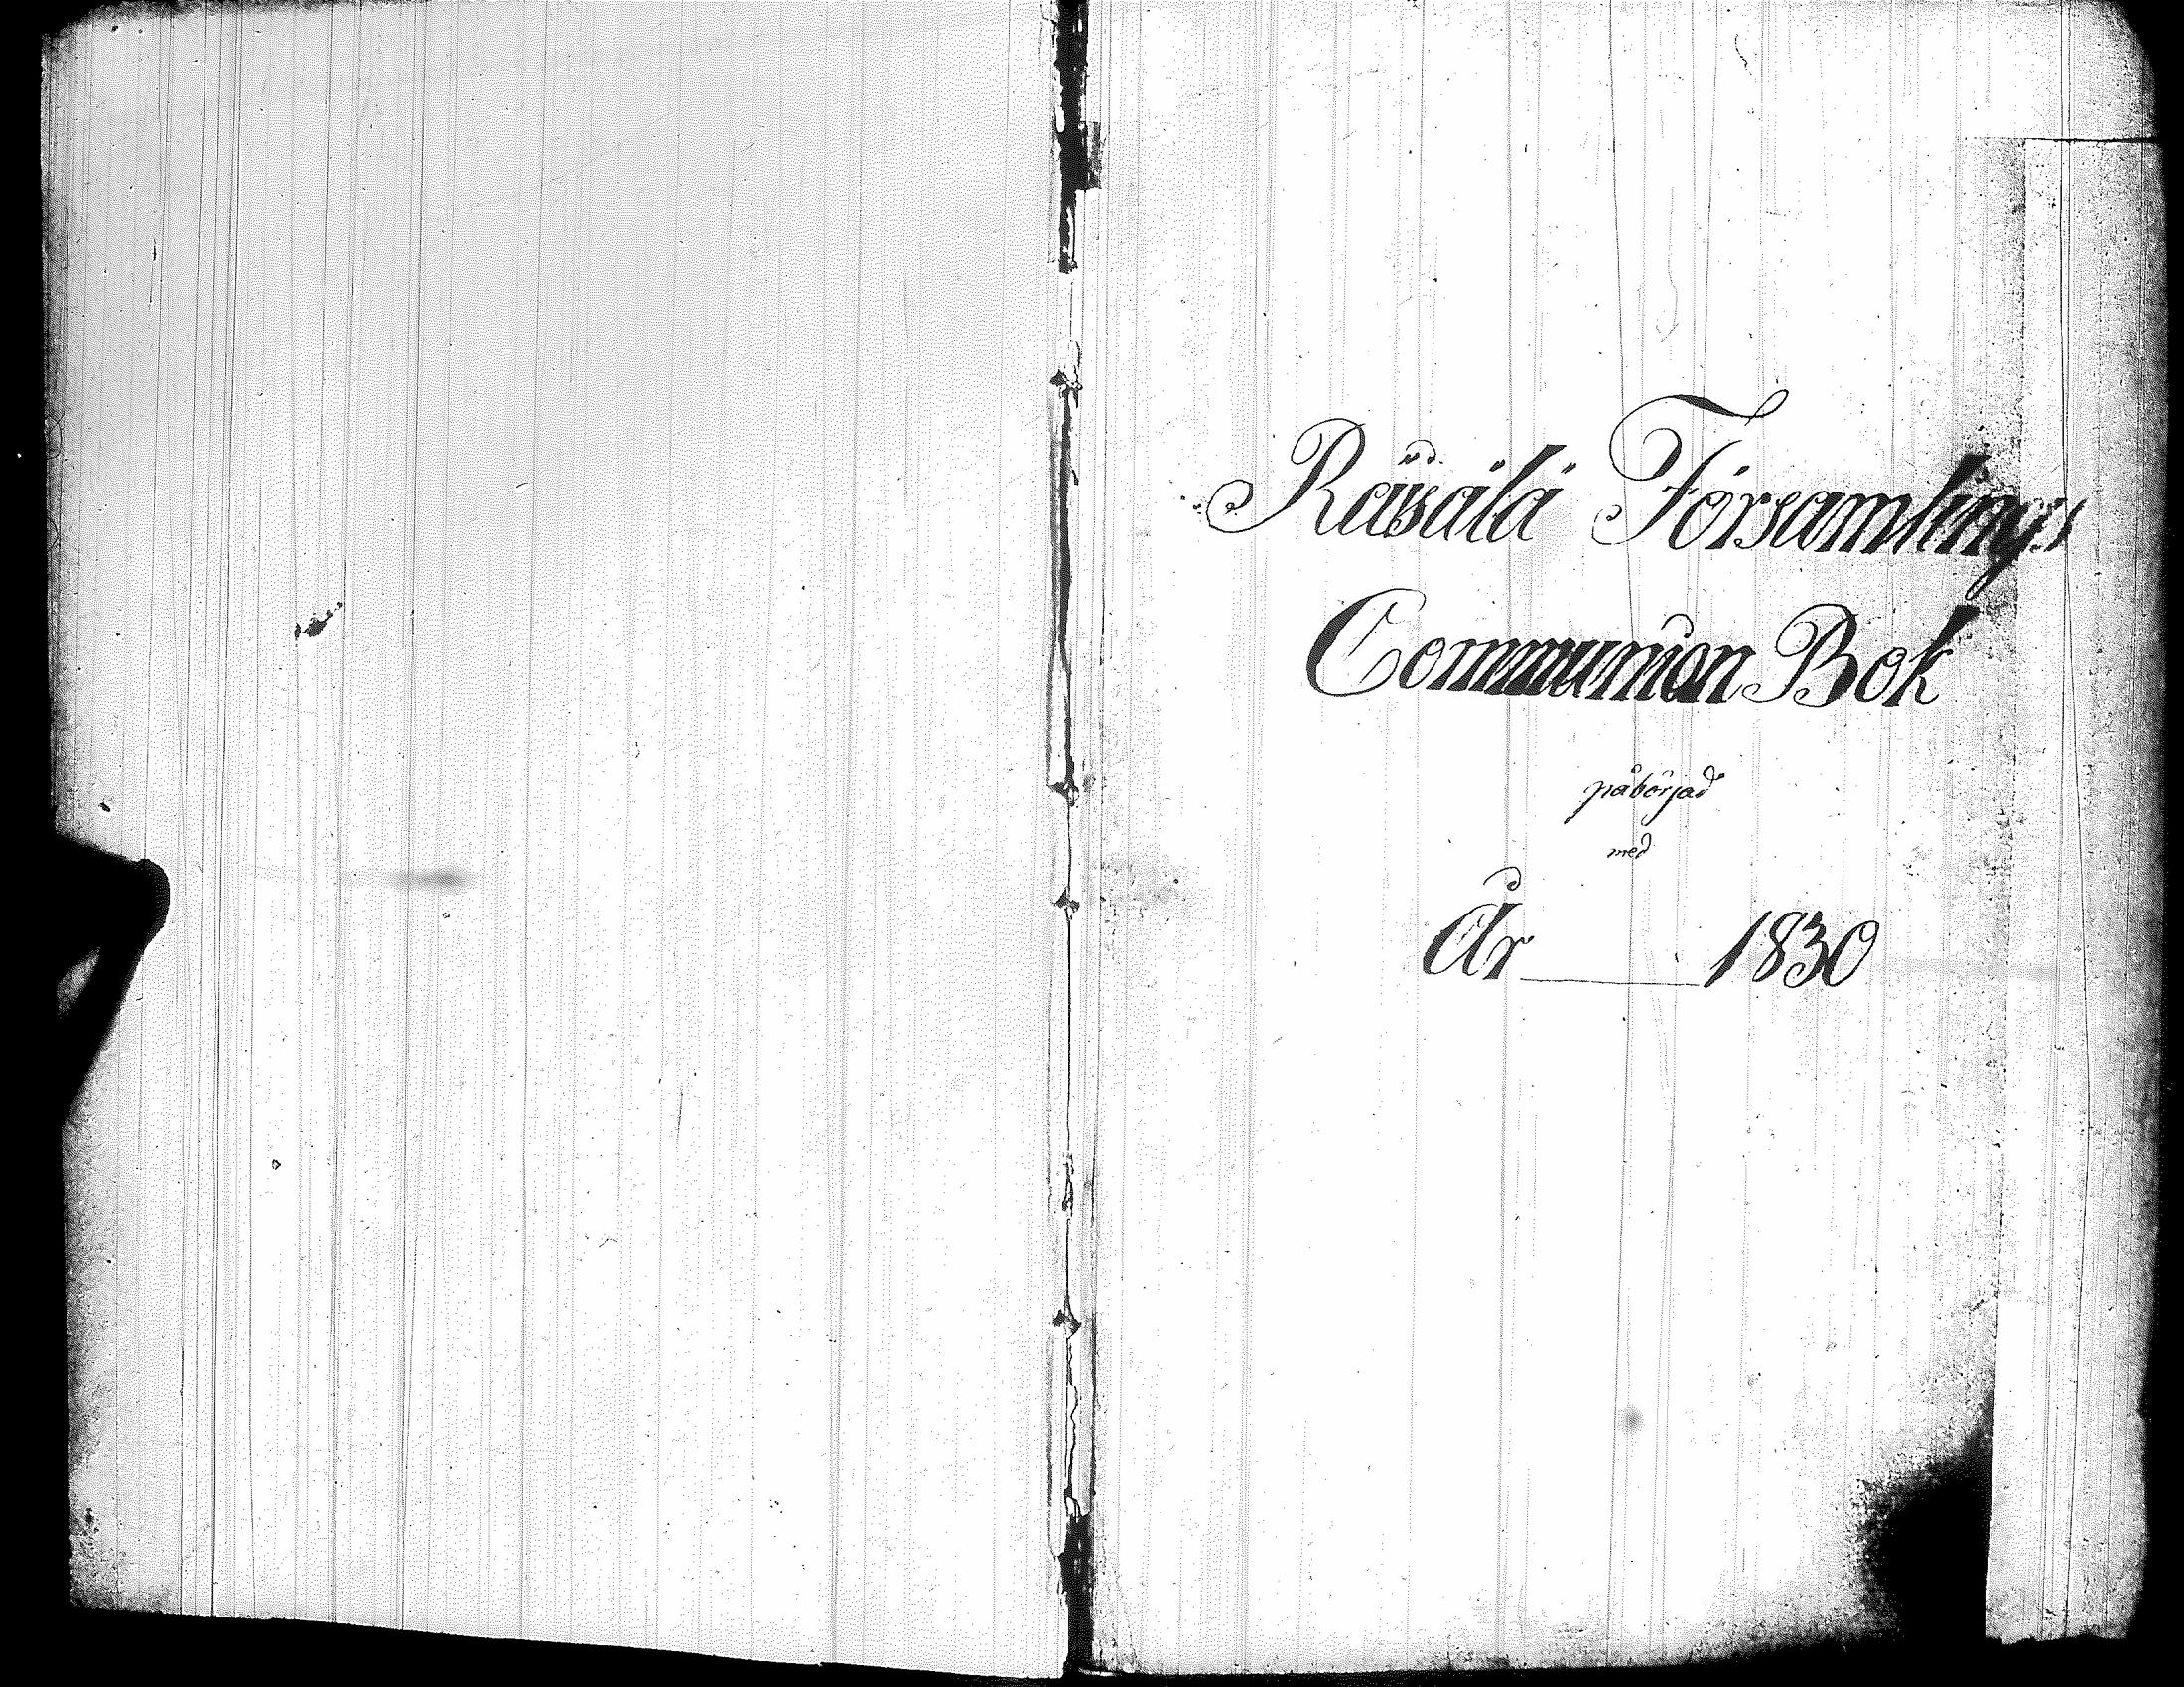 Räisälä Församlings
Communion Bok
påbörjad
med
År 1830